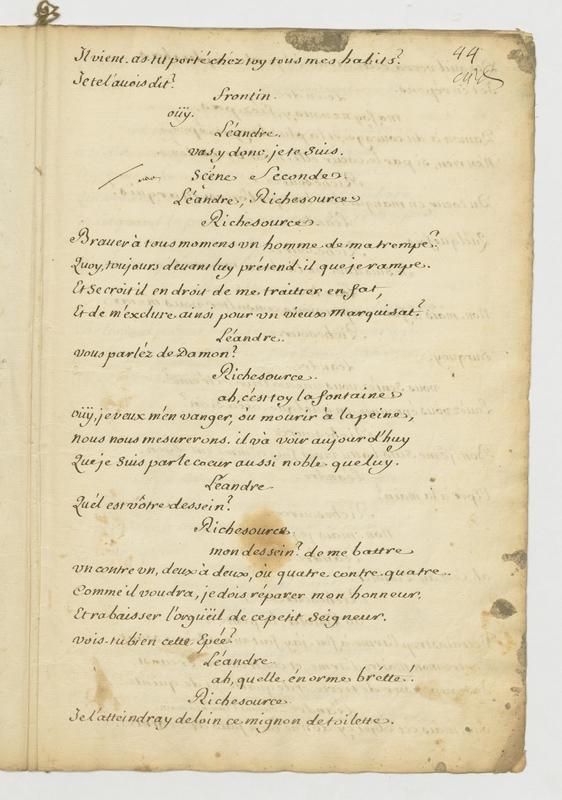 44
Il vient. as-tu porté chez toy tous mes habits?
Je te l'avois dit?
frontin.
oüy.
Léandre.
vas y donc, je te suis.
Scéne Seconde
Léandre, Richesource
Richesource
Braver à tous momens vn homme de ma trempe?
Quoy, toujours devant luy prétend-il que je rampe.
Et se croit il en droit de me traitter en fat,
Et de m'exclure ainsi pour vn vieux Marquisat?
Léandre.
vous parléz de Damon?
Richesource.
ah, c'est toy la fontaine
oüy, je veux m'en vanger, où mourir à la peine,
nous nous mesurerons. il và voir aujourd'huy
Que je suis par le coeur aussi noble que luy.
Léandre
Quél est vôtre dessein?
Richesource
mon dessein? de me battre
vn contre vn, deux à deux, où quatre contre quatre..
Comme il voudra, je dois réparer mon honneur.
Et rabaisser l'orgüeil de ce petit Seigneur.
vois-tu bien cette Epée?
Léandre
ah, quelle énorme brétte!.
Richesource
Je l'atteindray de loin ce mignon de toilette.